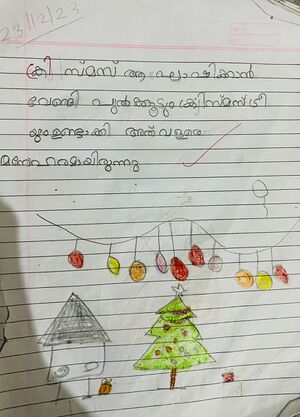 23/12/23
ക്രിസ്മസ് ആഘോഷിക്കാൻ
വേണ്ടി പുൽക്കൂടും ക്രിസ്മസ് ട്രീ
യും ഉണ്ടാക്കി അത് വളരെ
മനോഹരമായിരുന്നു